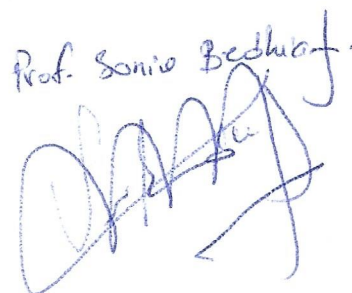 Prof. Sonia Bedhiaf